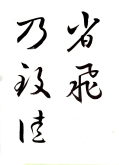 省飛
乃致佳